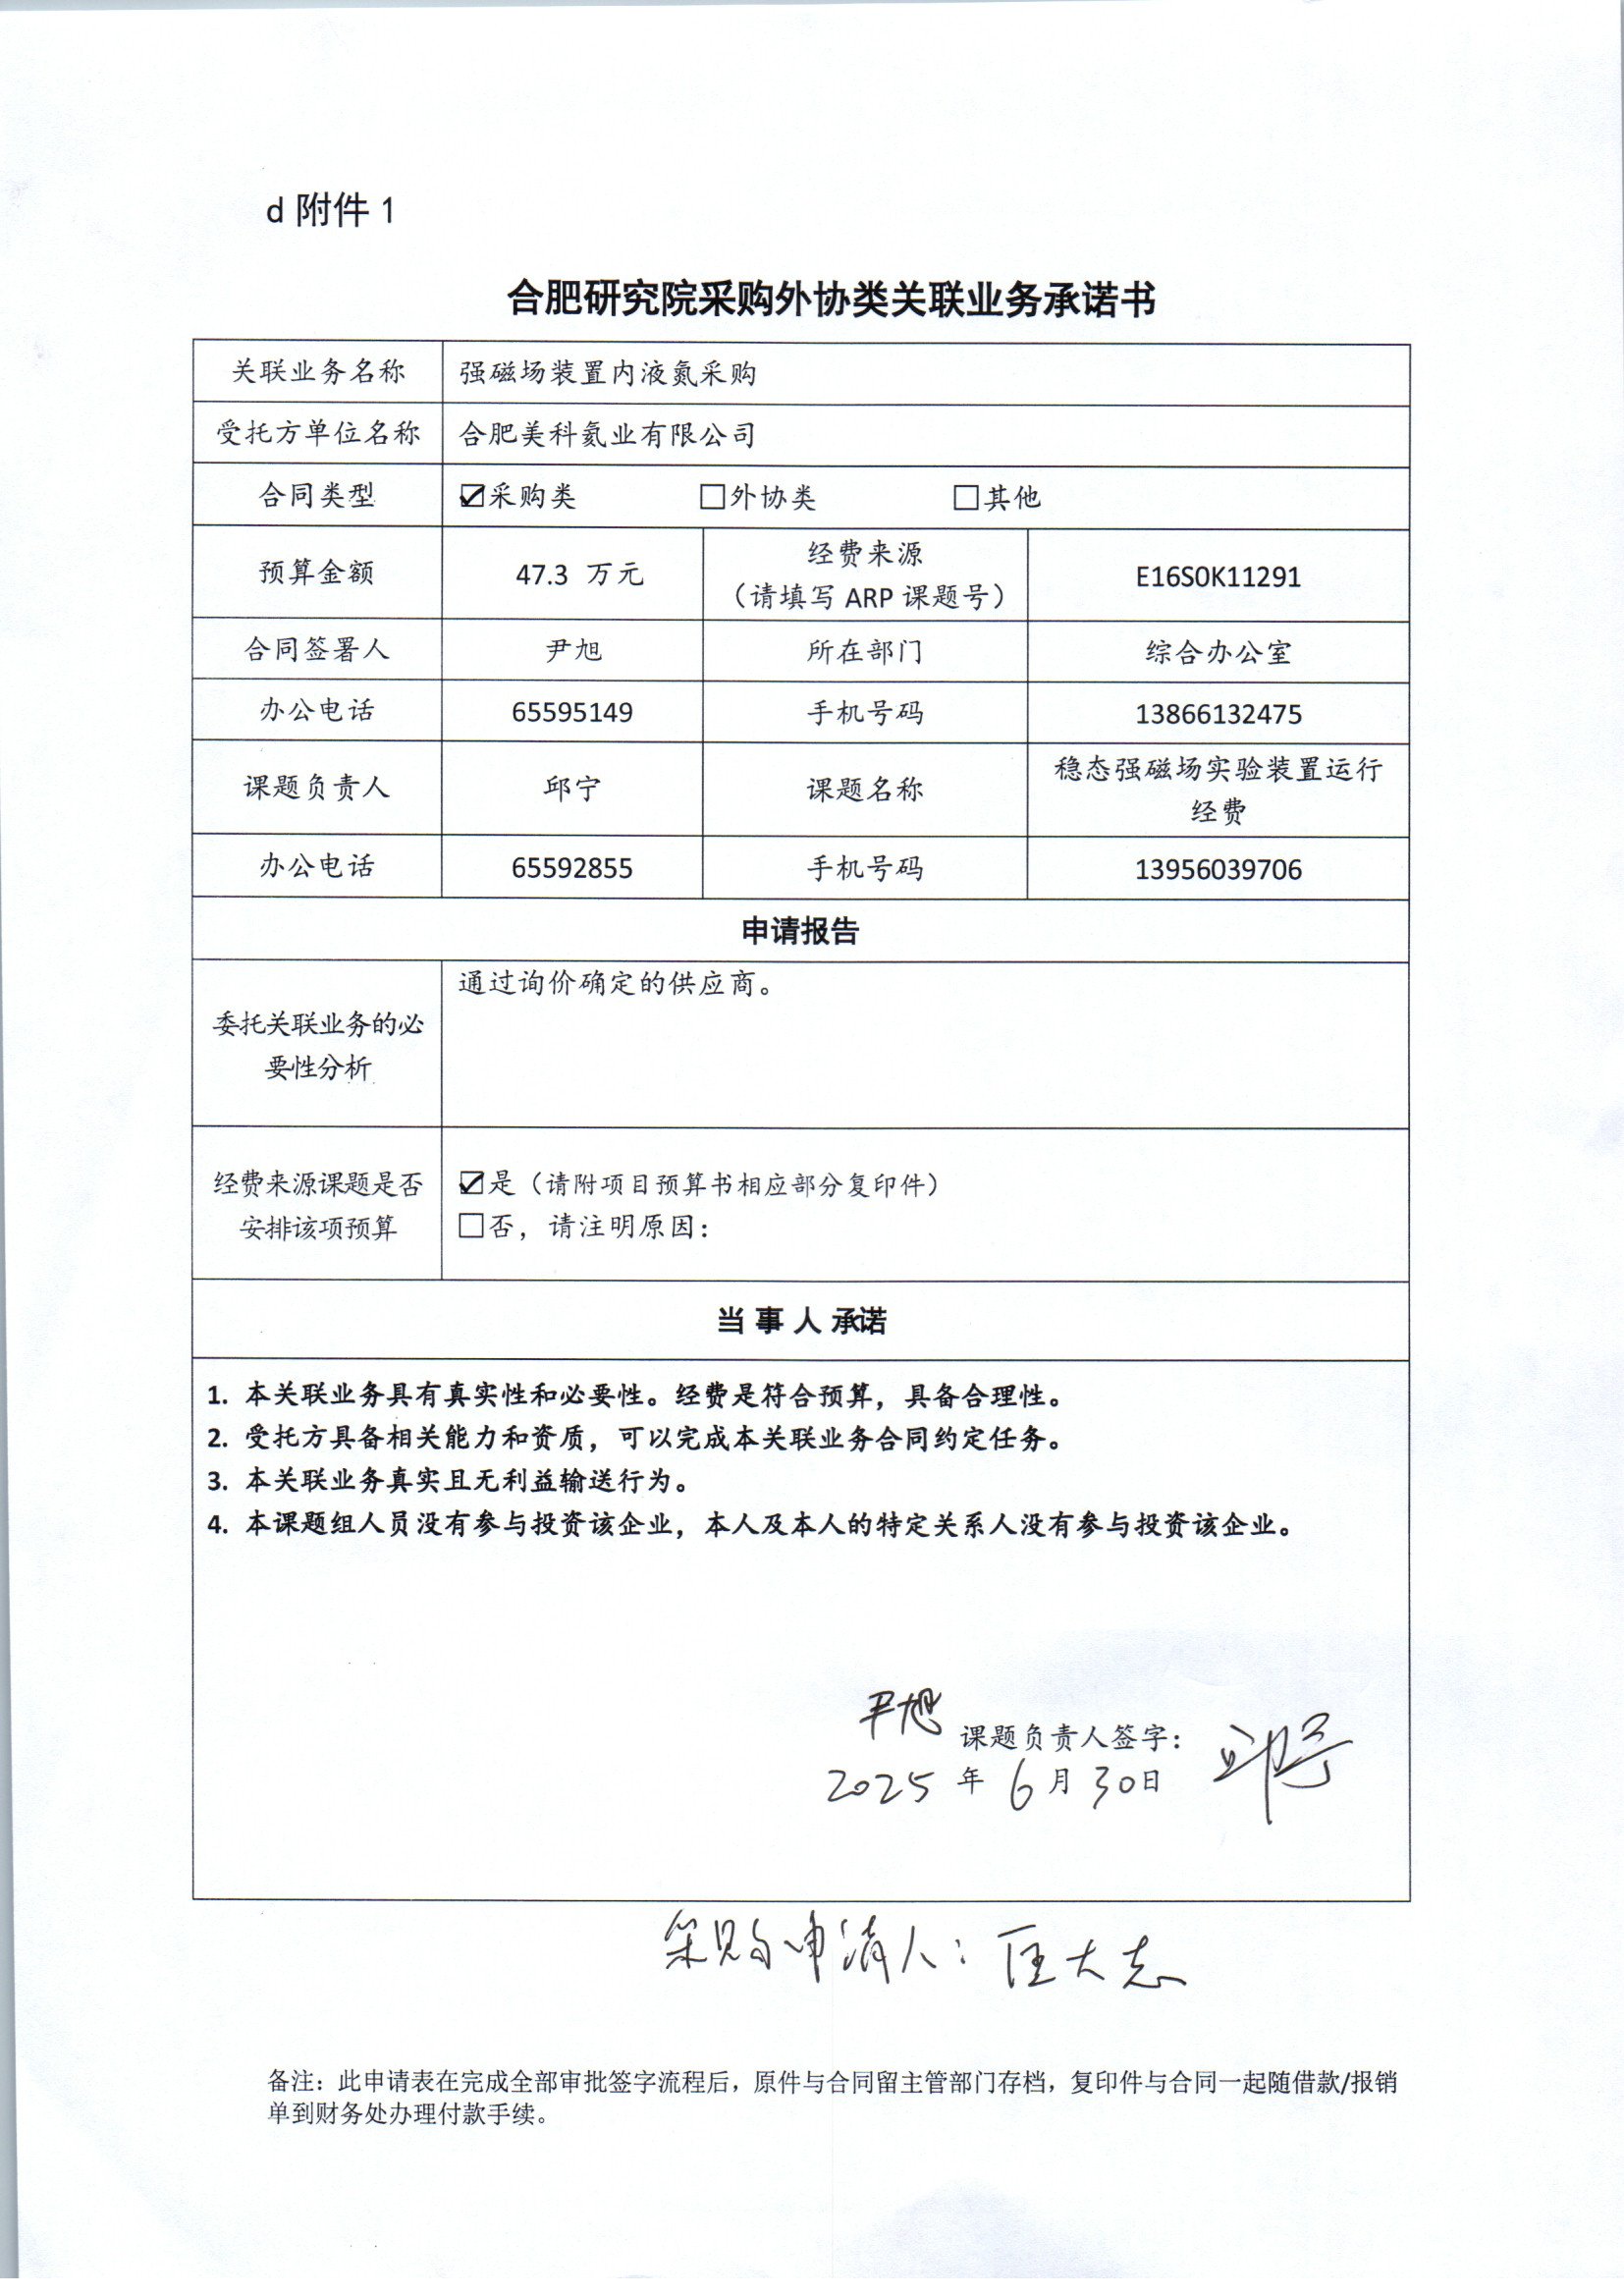 d 附件 1
合肥研究院采购外协类关联业务承诺书
关联业务名称 强磁场装置内液氮采购
受托方单位名称 合肥美科氦业有限公司
合同类型 ☑采购类 □外协类 □其他
预算金额 47.3 万元 经费来源
（请填写 ARP 课题号） E16S0K11291
合同签署人 尹旭 所在部门 综合办公室
办公电话 65595149 手机号码 13866132475
课题负责人 邱宁 课题名称 稳态强磁场实验装置运行
经费
办公电话 65592855 手机号码 13956039706
申请报告
委托关联业务的必
要性分析
通过询价确定的供应商。
经费来源课题是否
安排该项预算
☑是（请附项目预算书相应部分复印件）
□否，请注明原因：
当 事 人 承诺
1. 本关联业务具有真实性和必要性。经费是符合预算，具备合理性。
2. 受托方具备相关能力和资质，可以完成本关联业务合同约定任务。
3. 本关联业务真实且无利益输送行为。
4. 本课题组人员没有参与投资该企业，本人及本人的特定关系人没有参与投资该企业。
尹旭 课题负责人签字： 邱宁
2025 年 6 月 30 日
采购申请人：匡大志
备注：此申请表在完成全部审批签字流程后，原件与合同留主管部门存档，复印件与合同一起随借款/报销
单到财务处办理付款手续。